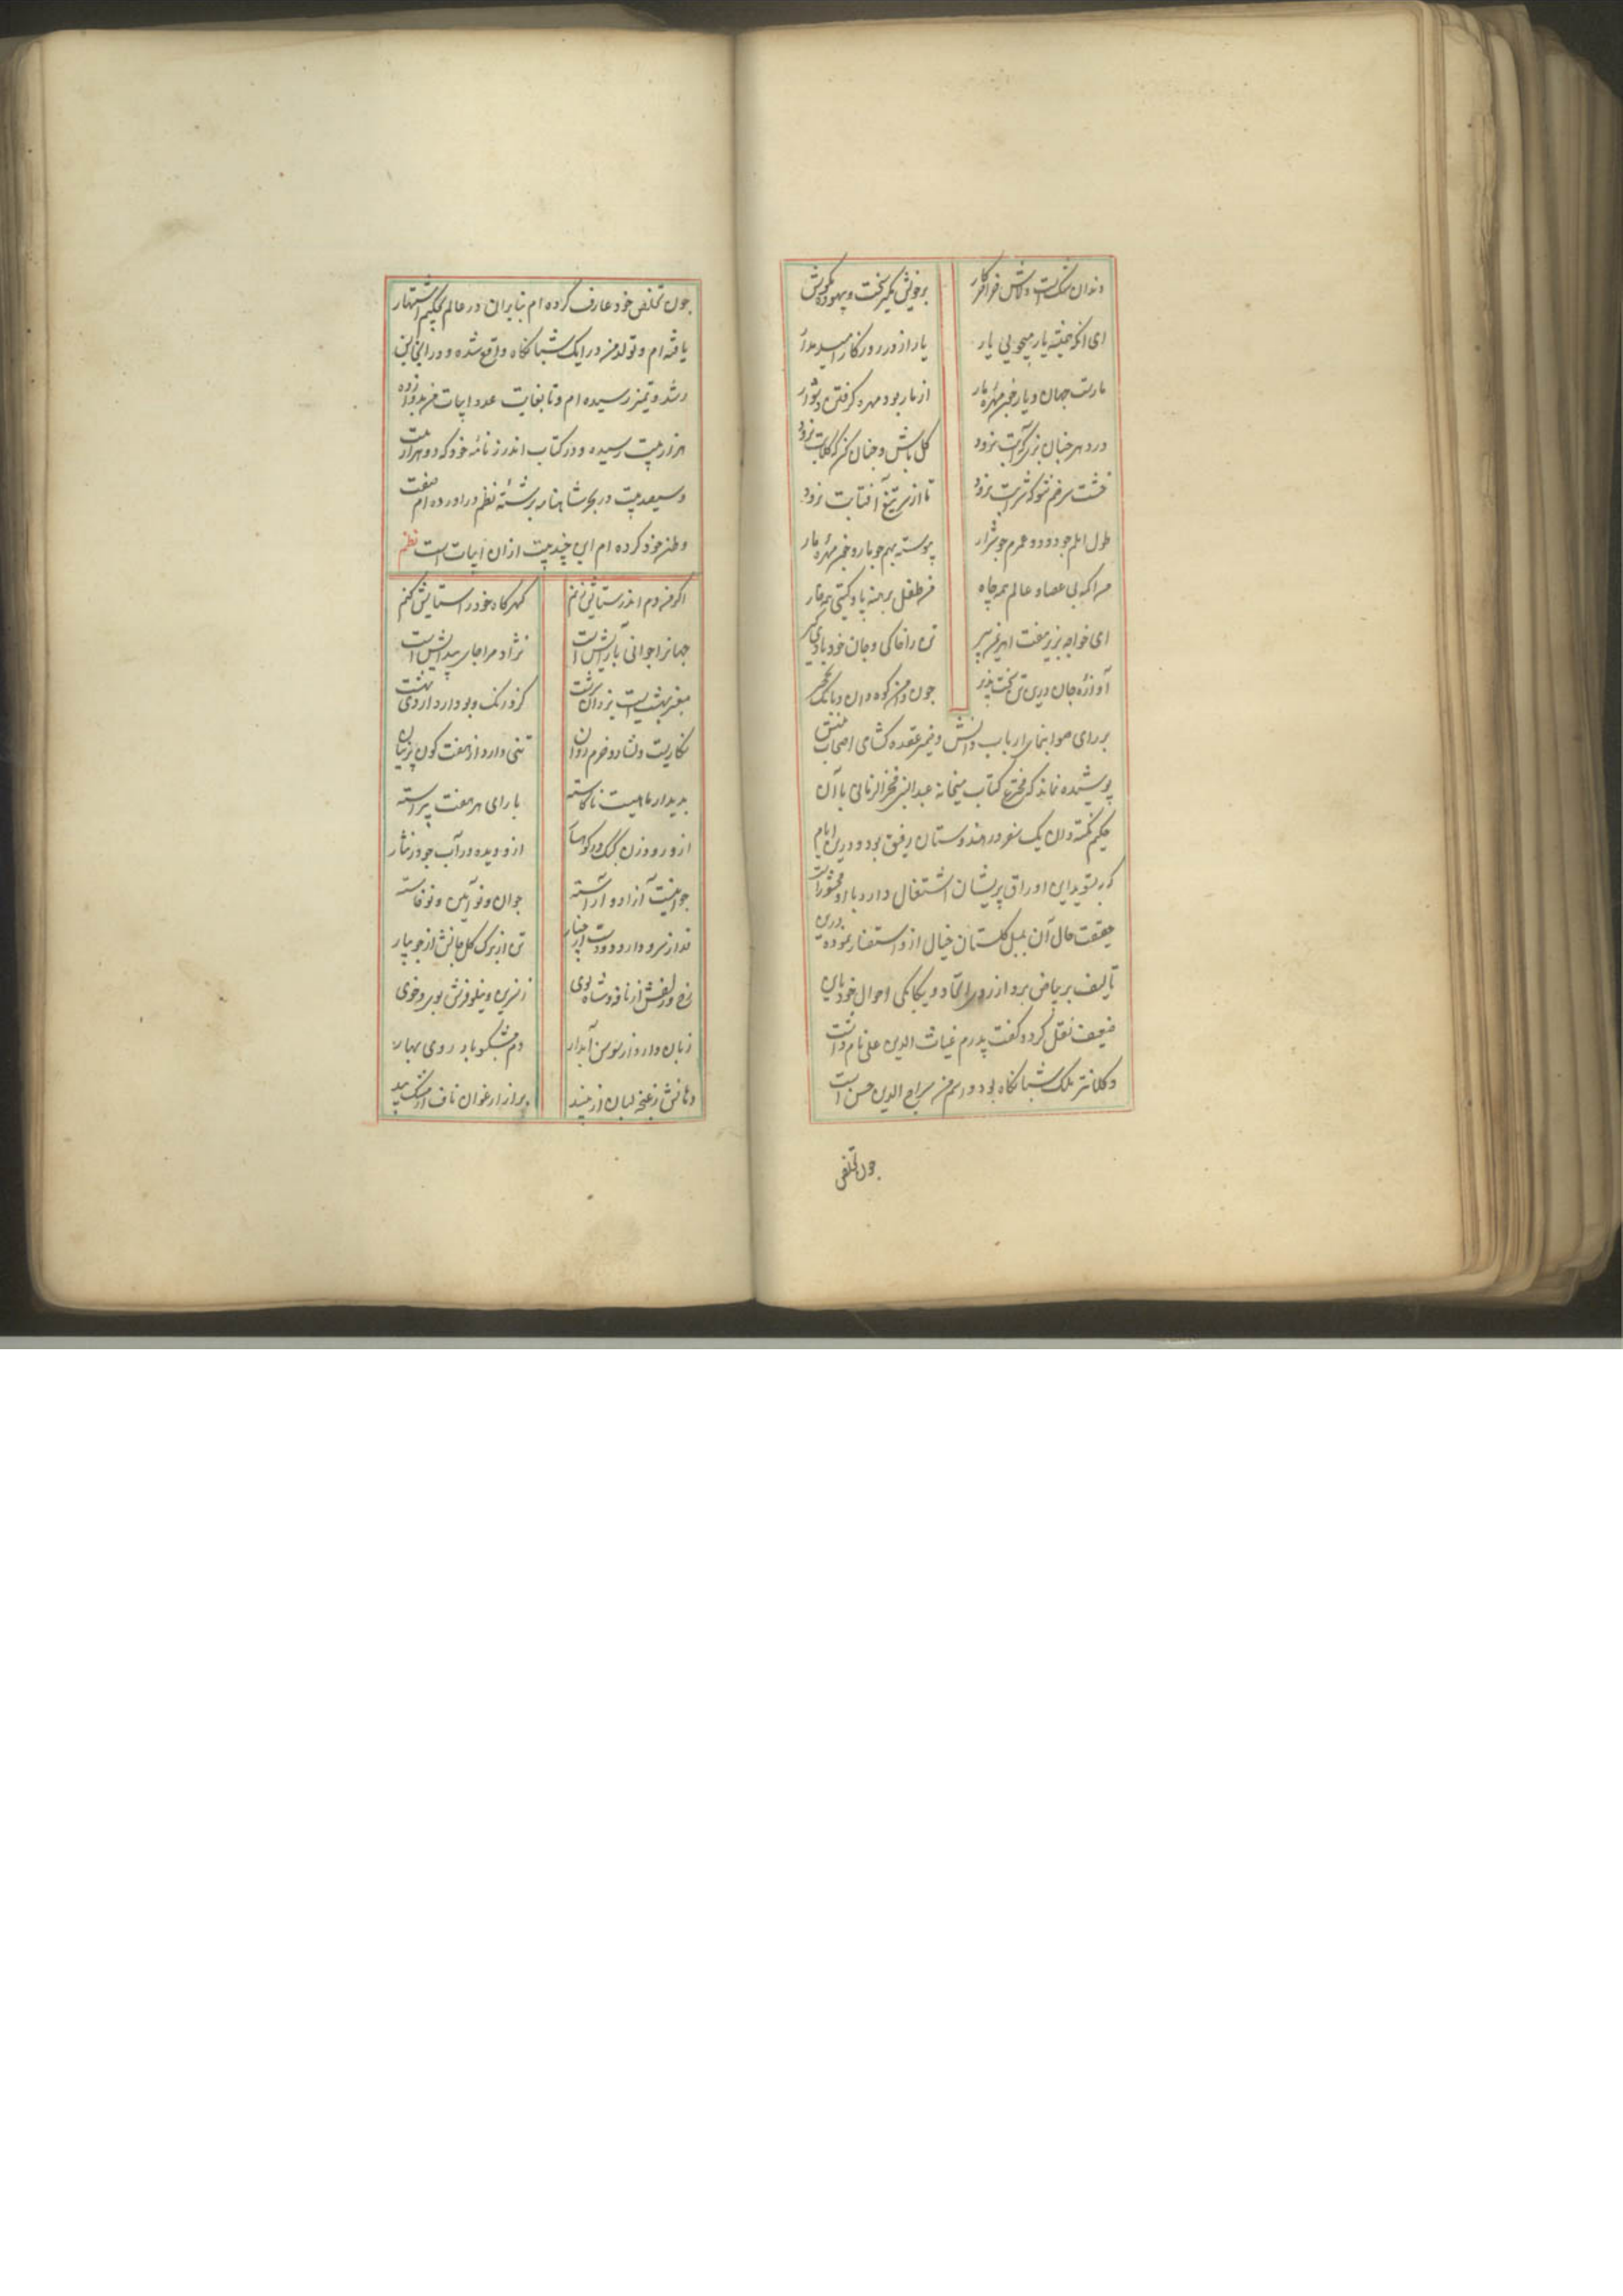 دندان سکست و لاش فراقرار
بر خویش بگیر سخت و بیهوده مکوش
ای انکه همیشه یار میجویی یار
یار از دور روزکار امید مدار
مارست جهان و یار خیر مهره مار
از مار بود مهره کرفتن دشوار
در دهر چنان بزی که آبت نرود
کل باش و چنان کن که کلابت نرود
خشت سر خم شو که شرابت نرود
تا از سر تیغ آفتابت نرود
طول املم چو دود و عمرم چو شرار
پیوسته بهم چو مار و خیر مهره مار
مرا که بی عصا و عالم همه چاه
من طفل برهنه پا و کیتی همه خار
ای خواجه بزیر هفت
تن را خاکی و جان خود بادی کیر
آوازه جان درین تن سخت پذیر
چون دامن کوه دان و بانک نخجیر
بر رای صوابنمای ارباب دانش و ضمیر عقده کشای اصحاب بینش
پوشیده نماند که مخترع کتاب میخانه عبدالنبی فخرالزمانی با آن
حکیم نکته دان یک سفر در هندوستان رفیق بود و درین ایام
که بتسوید این اوراق پریشان اشتغال دارد با او محشورست
حقیقت حال آن بلبل کلستان خیال از او استفسار نموده درین
تالیف بر بیاض برد از روی اتحاد و یکانکی احوال خود باین
ضعیف نقل کرد و کفت پدرم غیاث الدین علی نام داشت
و کلانتر ملک شبانکاه بود و اسم من سراج الدین حسن است
چون تخلص
چون تخلص خود عارف کرده ام بنابران در عالم بحکیم اشتهار
یافته ام و تولد من در ایک شبانکاه واقع شده و در این
رشد و تمیز رسیده ام و تا بغایت عدد ابیات من بدوازده
هزار بیت رسیده و در کتاب اندرزنامه خود که دو هزار بیت
و سیصد بیت در بحر شاهنامه برشته نظم در اورده ام صفت
وطن خود کرده ام این چند بیت ازان ابیات است نظم
اکر من دم اندر ستایش زنم
کهر کاه خود را ستایش کنم
جهانرا جوانی بارایش است
نژاد مرا جای پیدایش است
بمغز بهشت است یزدان سرشت
کزو رنک و بو دارد اردی بهشت
نکاریست دلشاد و خرم روان
تنی دارد از هفت کون پرنیان
بدیدار ماهیست ناکاسته
بارای هر هفت پیراسته
ازو دیده در آب جو در نثار
جوانیست آزاد و آراسته
جوان و نو آیین و نوخاسته
قد از سرو دارد و دست از چنار
تن از برک کل جانش از جویبار
رخ و زلفش از نافه و شاه بوی
ز نسرین و نیلوفرش بوی و خوی
زبان دارد از سوسن آبدار
دم مشکبو باد روی بهار
دهانش ز غنچه لبان از
بر از ارغوان ناف از مشک بید